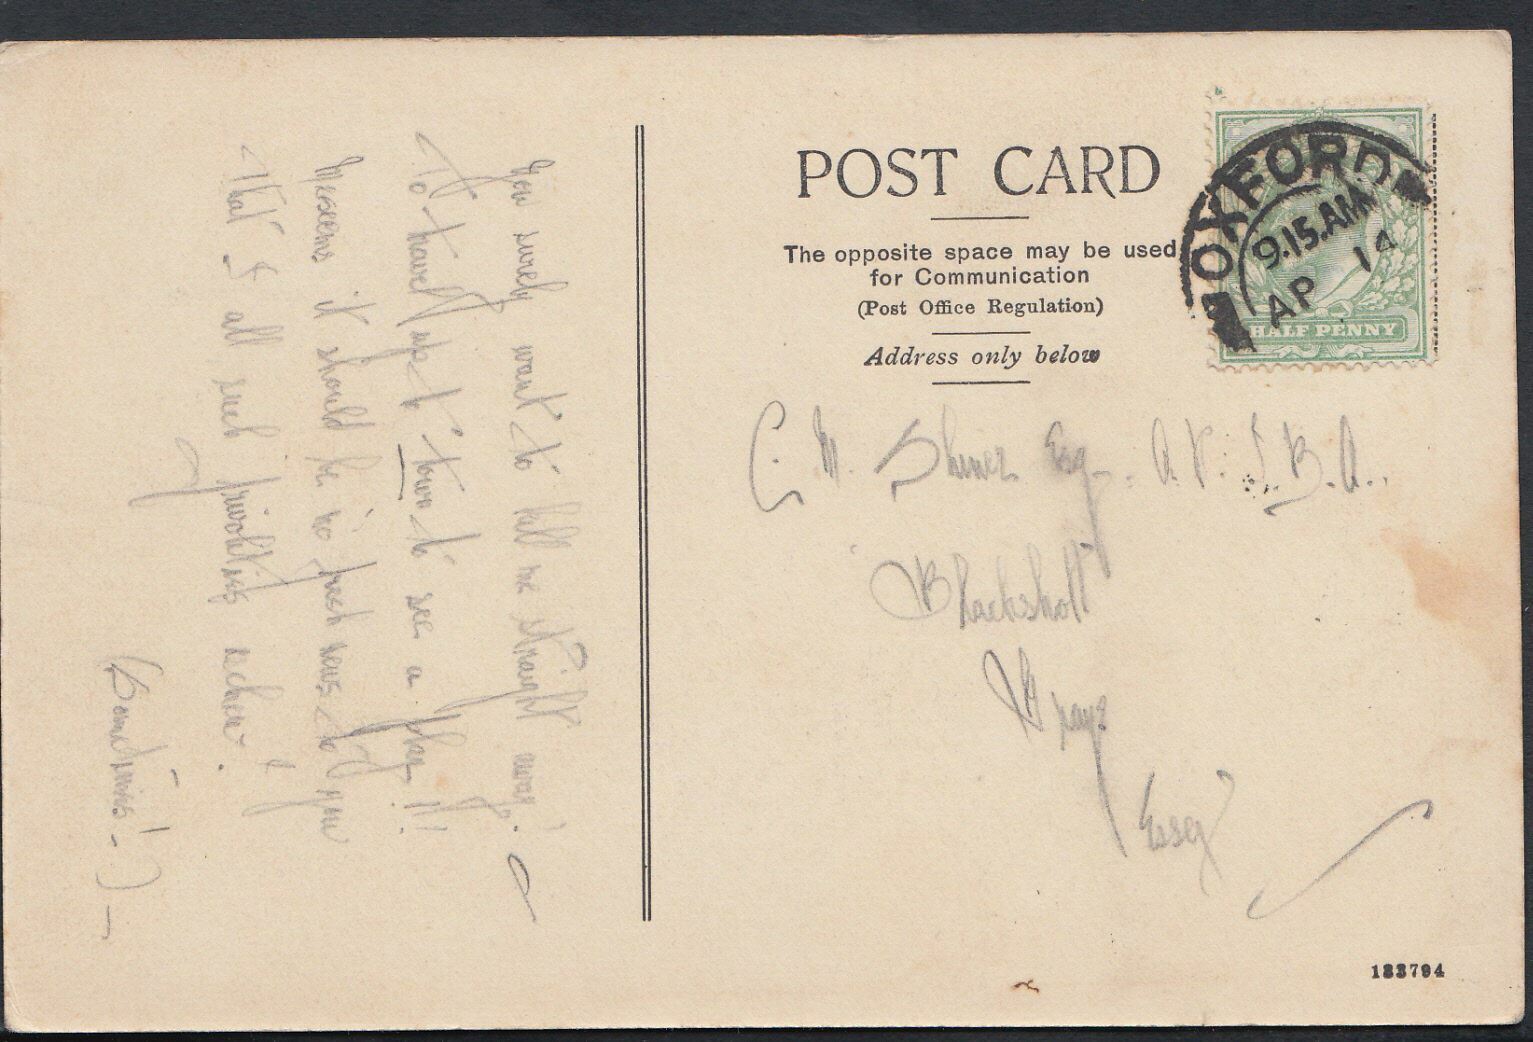 You surely want to kill me straight away!
To travel up to town to see a play!!!
Meseems it should be no fresh news to you
That I all such frivolities eschew.
(Sometimes! - ) -
POST CARD
The opposite space may be used
for Communication
(Post Office Regulation)
Address only below
OXFORD
9.15.AM
AP 14
HALF PENNY
C. M. Shiner Esq. A.V.S.B.A.
Blackshott
Grays
Essex
133794